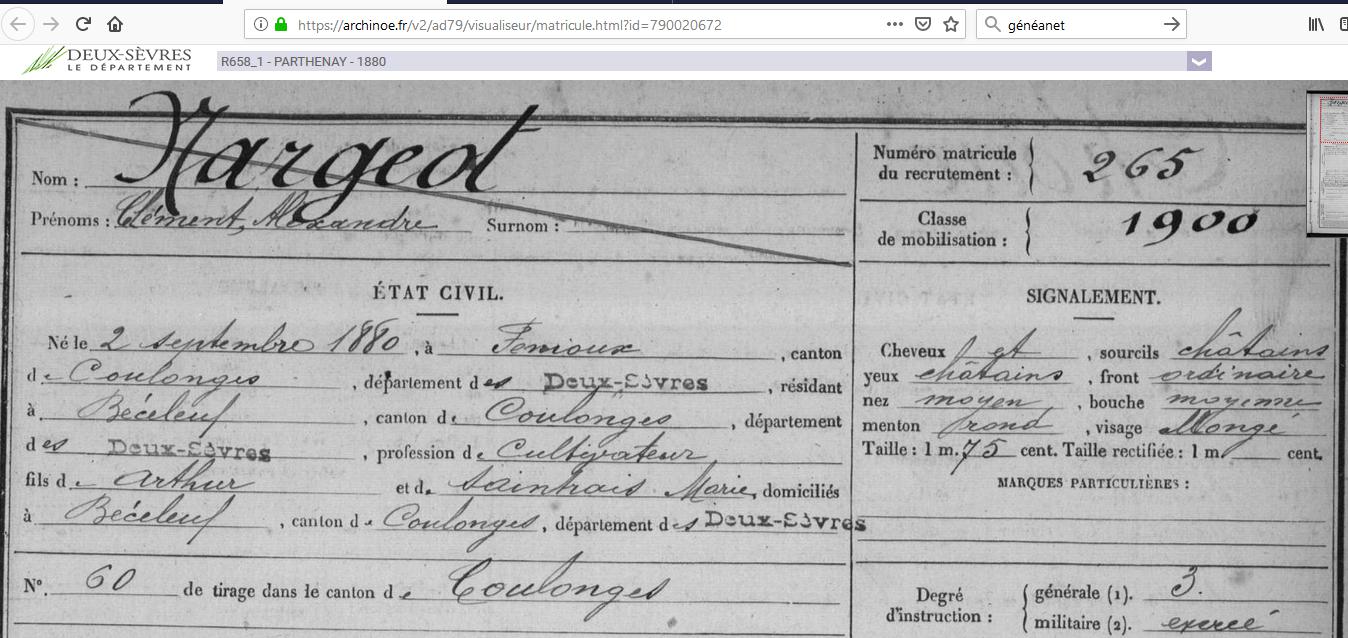 https://archinoe.fr/v2/ad79/visualiseur/matricule.html?id=790020672
généanet
DEUX-SÈVRES
LE DÉPARTEMENT
R658_1 - PARTHENAY - 1880
Nom : Nargeot
Prénoms : Clément, Alexandre Surnom :
Numéro matricule du recrutement : 265
Classe de mobilisation : 1900
ÉTAT CIVIL.
Né le 2 septembre 1880, à Fenioux, canton
de Coulonges, département des Deux-Sèvres, résidant
à Béceleuf, canton de Coulonges, département
des Deux-Sèvres, profession de Cultivateur
fils de Arthur et de Saintrais Marie, domiciliés
à Béceleuf, canton de Coulonges, département des Deux-Sèvres
N°. 60 de tirage dans le canton de Coulonges
SIGNALEMENT.
Cheveux et, sourcils châtains
yeux châtains, front ordinaire
nez moyen, bouche moyenne
menton rond, visage allongé
Taille : 1 m. 75 cent. Taille rectifiée : 1 m. cent.
MARQUES PARTICULIÈRES :
Degré d'instruction :
générale (1). 3.
militaire (2). exercé